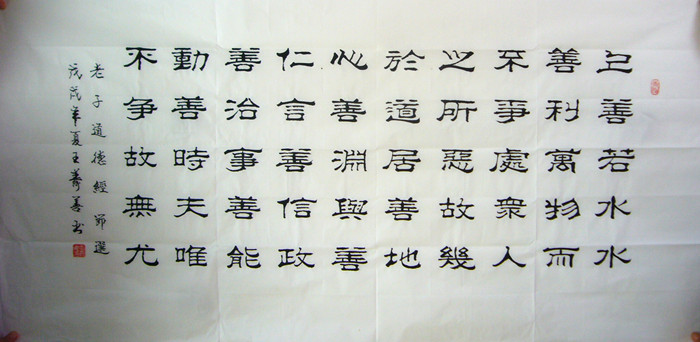 上善若水水
善利萬物而
不爭處衆人
之所惡故幾
於道居善地
心善淵與善
仁言善信政
善治事善能
動善時夫唯
不争故無尤
老子道德經節選
戊戌年夏王善书